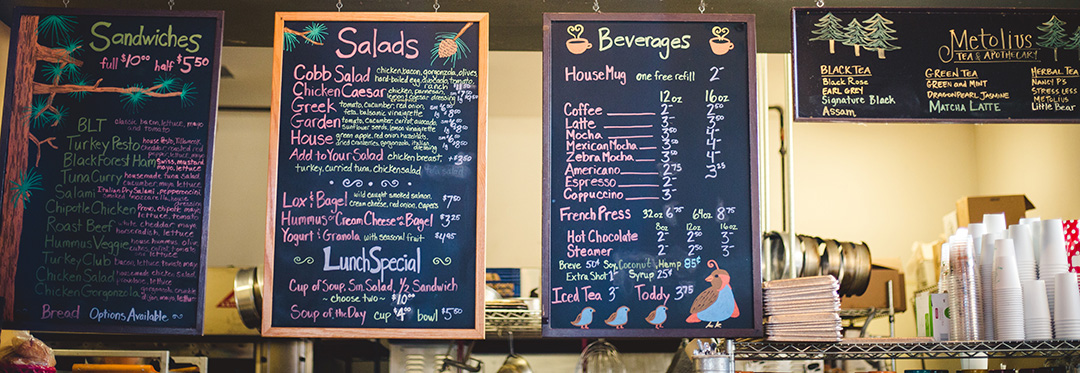 Sandwiches
full $10⁰⁰ half $5⁵⁰
BLT classic bacon, lettuce, mayo and tomato
Turkey Pesto house pesto,
cheddar roasted red pepper, lettuce mayo
Black Forest Ham swiss, mustard mayo, lettuce
Tuna Curry housemade tuna salad, cucumber, mayo, lettuce
Salami Italian Dry Salami, pepperoncini
Chipotle Chicken mayo lettuce, tomato
Roast Beef white cheddar, mayo horseradish, lettuce
Hummus Veggie house hummus, olive
Turkey Club bacon, lettuce, tomato, mayo
Chicken Salad housemade chicken salad
Chicken Gorgonzola
Bread Options Available
Salads
Cobb Salad chicken, bacon, gorgonzola, olives,
hard-boiled egg, avocado, tomato,
ranch
Chicken Caesar chicken, parmesan,
Greek tomato, cucumber, red onion,
feta, balsamic vinaigrette
Garden tomato, cucumber, carrot, avocado
sunflower seeds, lemon vinaigrette
House green apple, red onion, hazelnuts,
dried cranberries, gorgonzola,
Add to Your Salad chicken breast, +$3⁵⁰
turkey, curried tuna, chicken salad
Lox & Bagel wild caught smoked salmon, $7⁵⁰
cream cheese, red onion, capers
Hummus or Cream Cheese on a Bagel $3.25
Yogurt & Granola with seasonal fruit $4⁹⁵
Lunch Special
Cup of Soup, Sm. Salad, ½ Sandwich
~ choose two ~ $10⁰⁰
Soup of the Day cup $4⁰⁰ bowl $5⁵⁰
Beverages
House Mug one free refill 2-
12oz 16oz
Coffee 2- 2⁵⁰
Latte 3- 3⁵⁰
Mocha 3⁵⁰ 4-
Mexican Mocha 3⁵⁰ 4-
Zebra Mocha 3⁵⁰ 4-
Americano 2⁷⁵ 3²⁵
Espresso 2-
Cappuccino 3-
French Press 32oz 6⁷⁵ 64oz 8⁷⁵
8oz 12oz 16oz
Hot Chocolate 2- 2⁵⁰ 3-
Steamer 2- 2⁵⁰ 3-
Breve 50¢ Soy, Coconut, Hemp 85¢
Extra Shot 1- Syrup 25¢
Iced Tea 3- Toddy 3⁷⁵
Metolius
Tea & Apothecary
Black Tea
Black Rose
Earl Grey
Signature Black
Assam
Green Tea
Green and Mint
Dragonpearl Jasmine
Matcha Latte
Herbal Tea
Nancy P's
Stress Less
Metolius
Little Bear